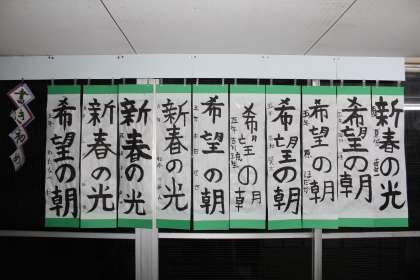 新春の光
希望の朝
希望の朝
希望の朝
希望の朝
希望の朝
新春の光
新春の光
新春の光
希望の朝
書きぞめ